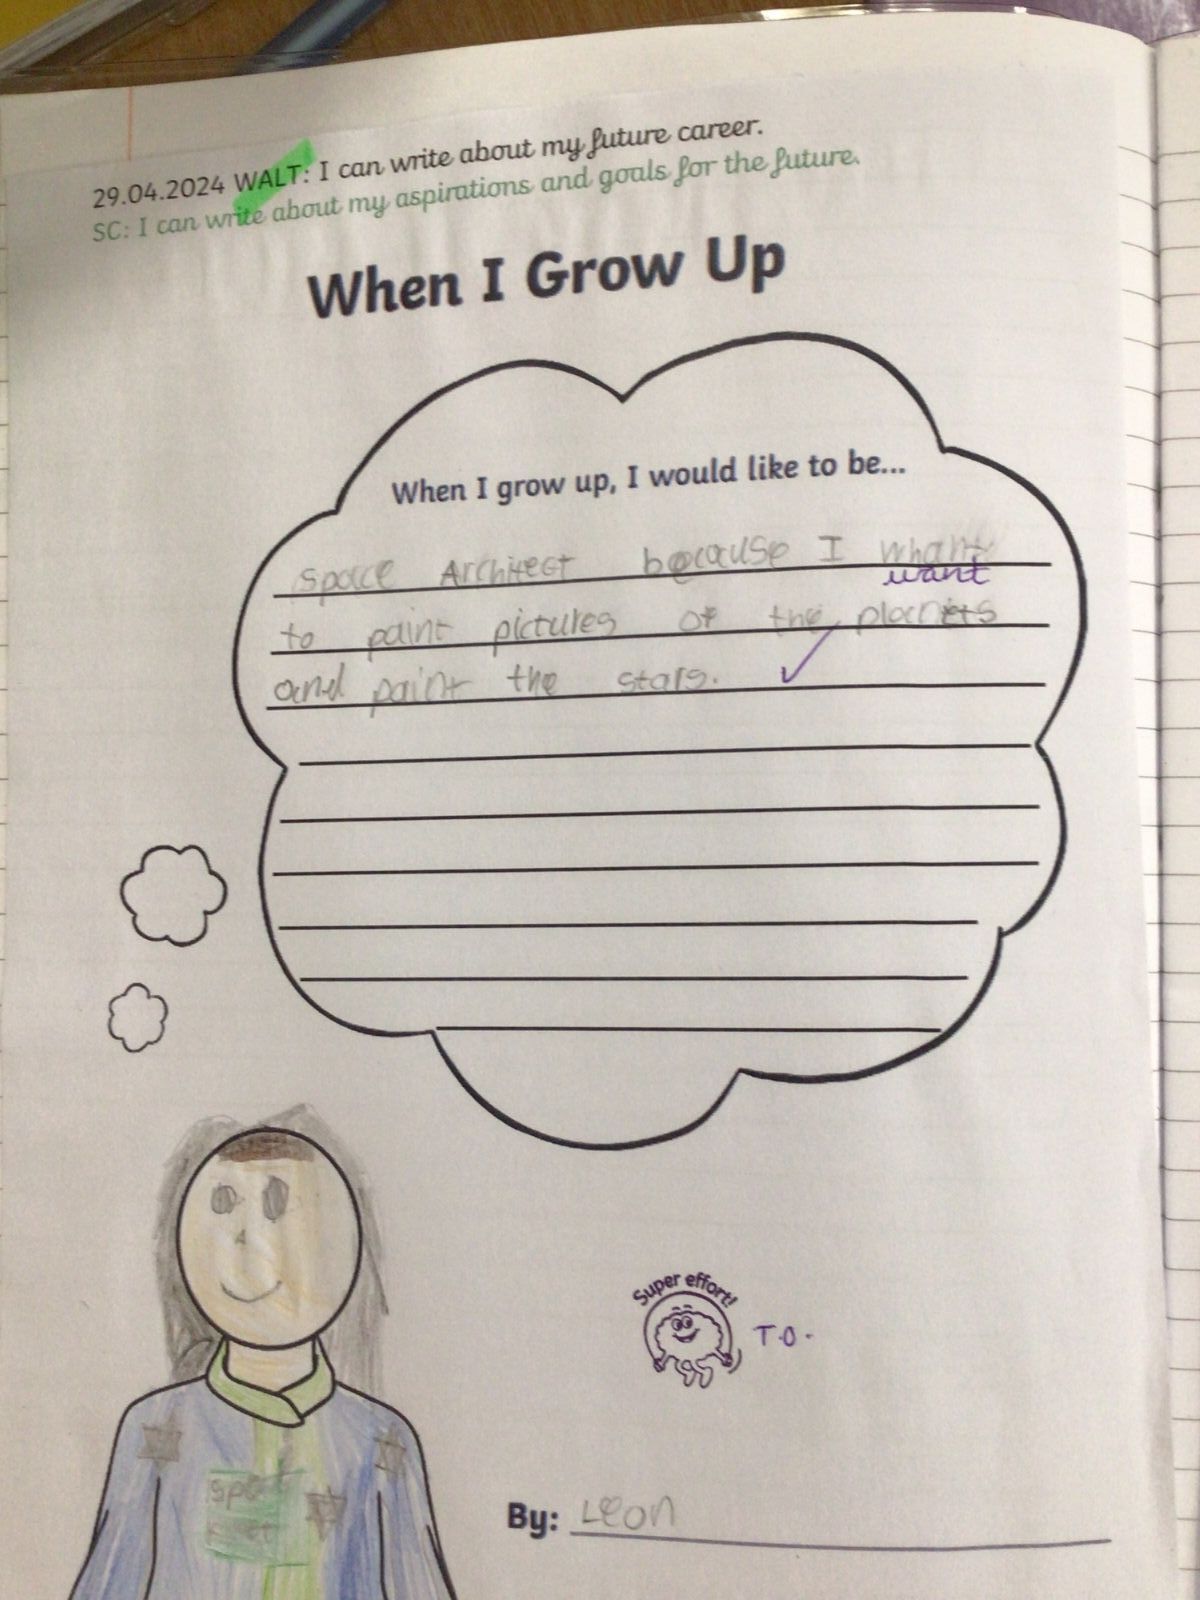 29.04.2024 WALT: I can write about my future career.
SC: I can write about my aspirations and goals for the future.
When I Grow Up
When I grow up, I would like to be...
space Architect because I whant
want
to paint pictures of the planets
and paint the stars.
Super effort!
T.O.
By: Leon